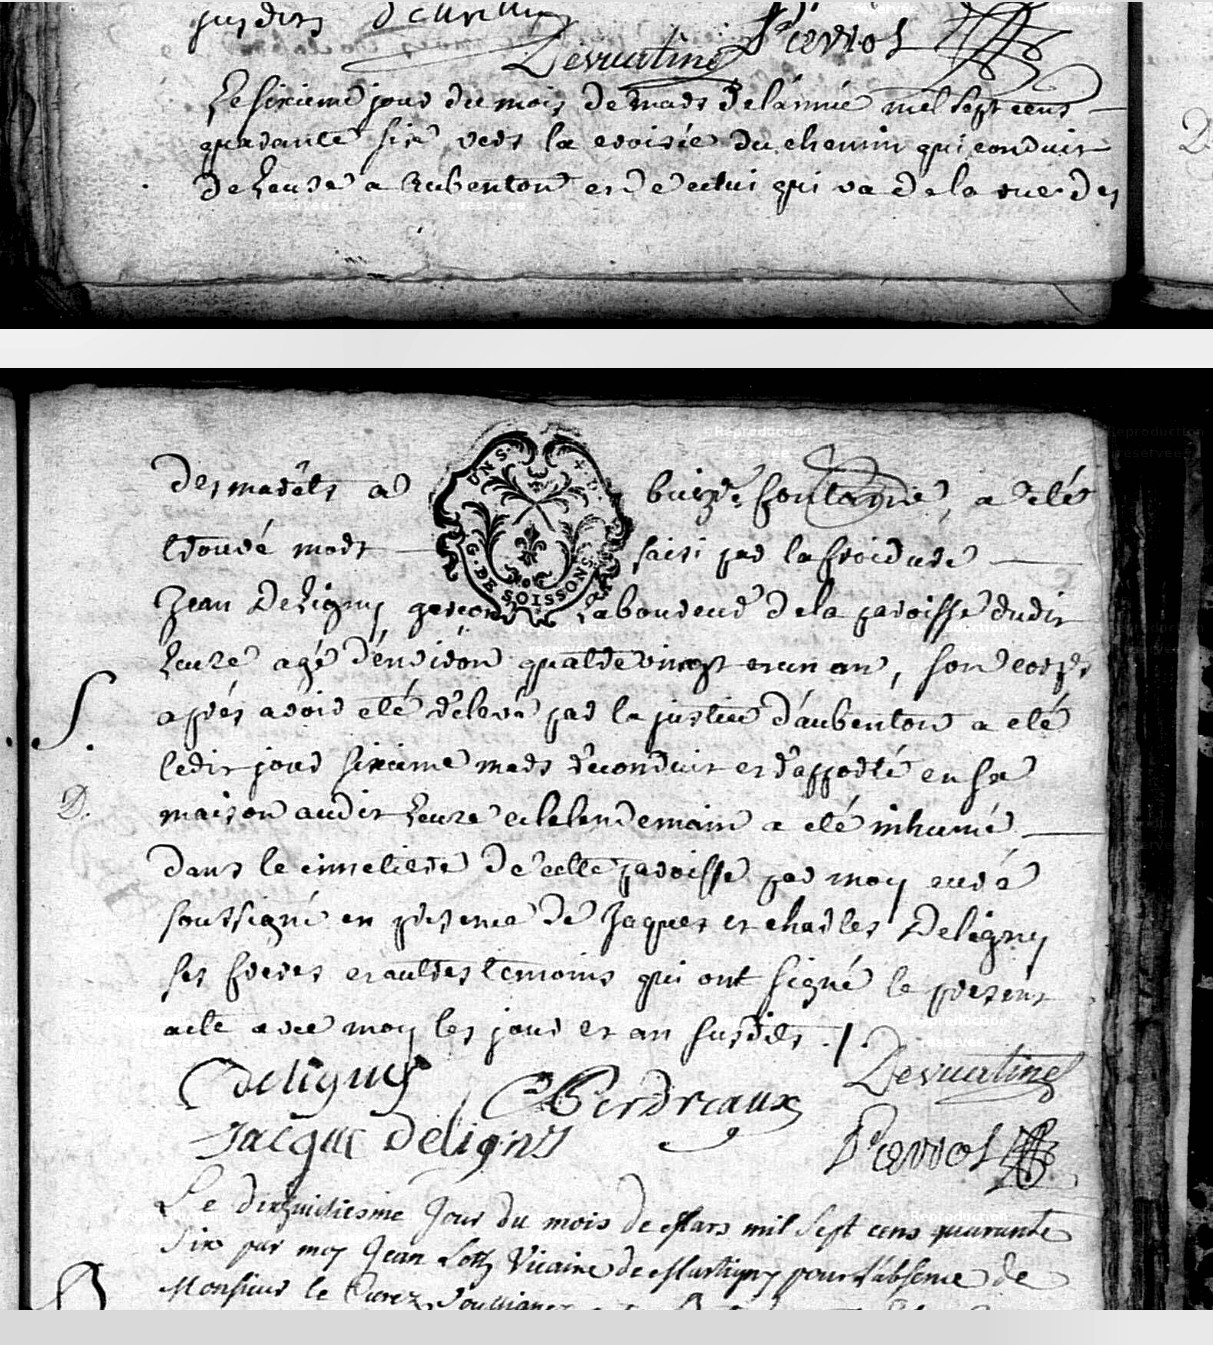 jusdits
Devuatine Pierrot
Le sixieme jour du mois de mars de lánnée mil sept cens
quarante six vers la croisée du chemin qui conduit
de Leuze a Aubenton et de celui qui va de la rue des
des marêts a buize fontaine, a eté
trouvé mort saisi par la froidure
G. DE SOISSONS
Jean Deligny garcon Laboureur de la paroisse dudit
Leuze agé dénviron quatre vingt et un an, son corps
aprés avoir eté rélevé par la justice d'aubenton a eté
ledit jour sixieme mars réconduit et rápporté en sa
maison audit Leuze et le lendemain a eté inhumé
dans le cimetiere de cette paroisse par moy curé
soussigné en presence de Jaques et charles Deligny
ses freres et autres temoins qui ont signé le present
acte avec moy les jour et an susdits ./
S.
D.
Deligny C Perdreaux Devuatine
Jacque Deligny Pierrot
Le dixhuitiesme Jour du mois de Mars mil sept cens quarante
six par moy Jean Vicaire de Martigny pour l'absence de
Monsieur le Curez